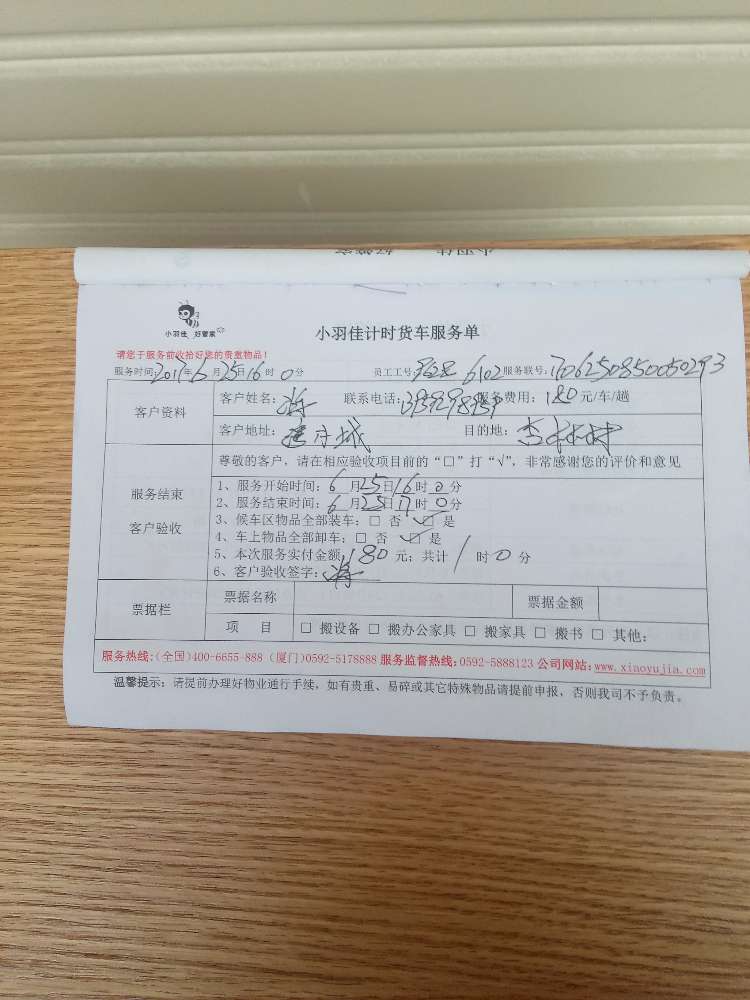 小羽佳 好管家
小羽佳计时货车服务单
请您于服务前收拾好您的贵重物品！
服务时间：2017年6月25日16时0分 员工工号： 6102 服务联号：1706250850050293
客户资料
客户姓名： 联系电话： 服务费用：180元/车/趟
客户地址： 目的地：
服务结束
客户验收
尊敬的客户，请在相应验收项目前的“□”打“√”，非常感谢您的评价和意见
1、服务开始时间：6月25日16时0分
2、服务结束时间：6月25日17时0分
3、候车区物品全部装车：□ 否 ☑ 是
4、车上物品全部卸车：□ 否 ☑ 是
5、本次服务实付金额：180元；共计1时0分
6、客户验收签字：
票据栏
票据名称 票据金额
项 目 □ 搬设备 □ 搬办公家具 □ 搬家具 □ 搬书 □ 其他：
服务热线：(全国)400-6655-888 (厦门)0592-5178888 服务监督热线：0592-5888123 公司网站：www.xiaoyujia.com
温馨提示：请提前办理好物业通行手续，如有贵重、易碎或其它特殊物品请提前申报，否则我司不予负责。